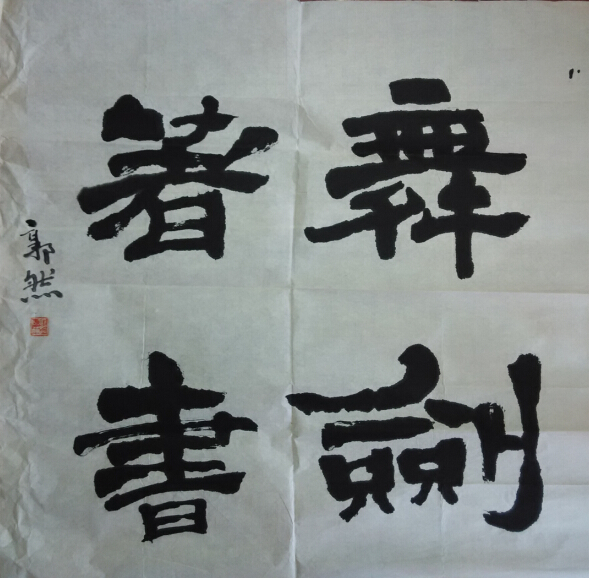 舞劍
著書
郭然